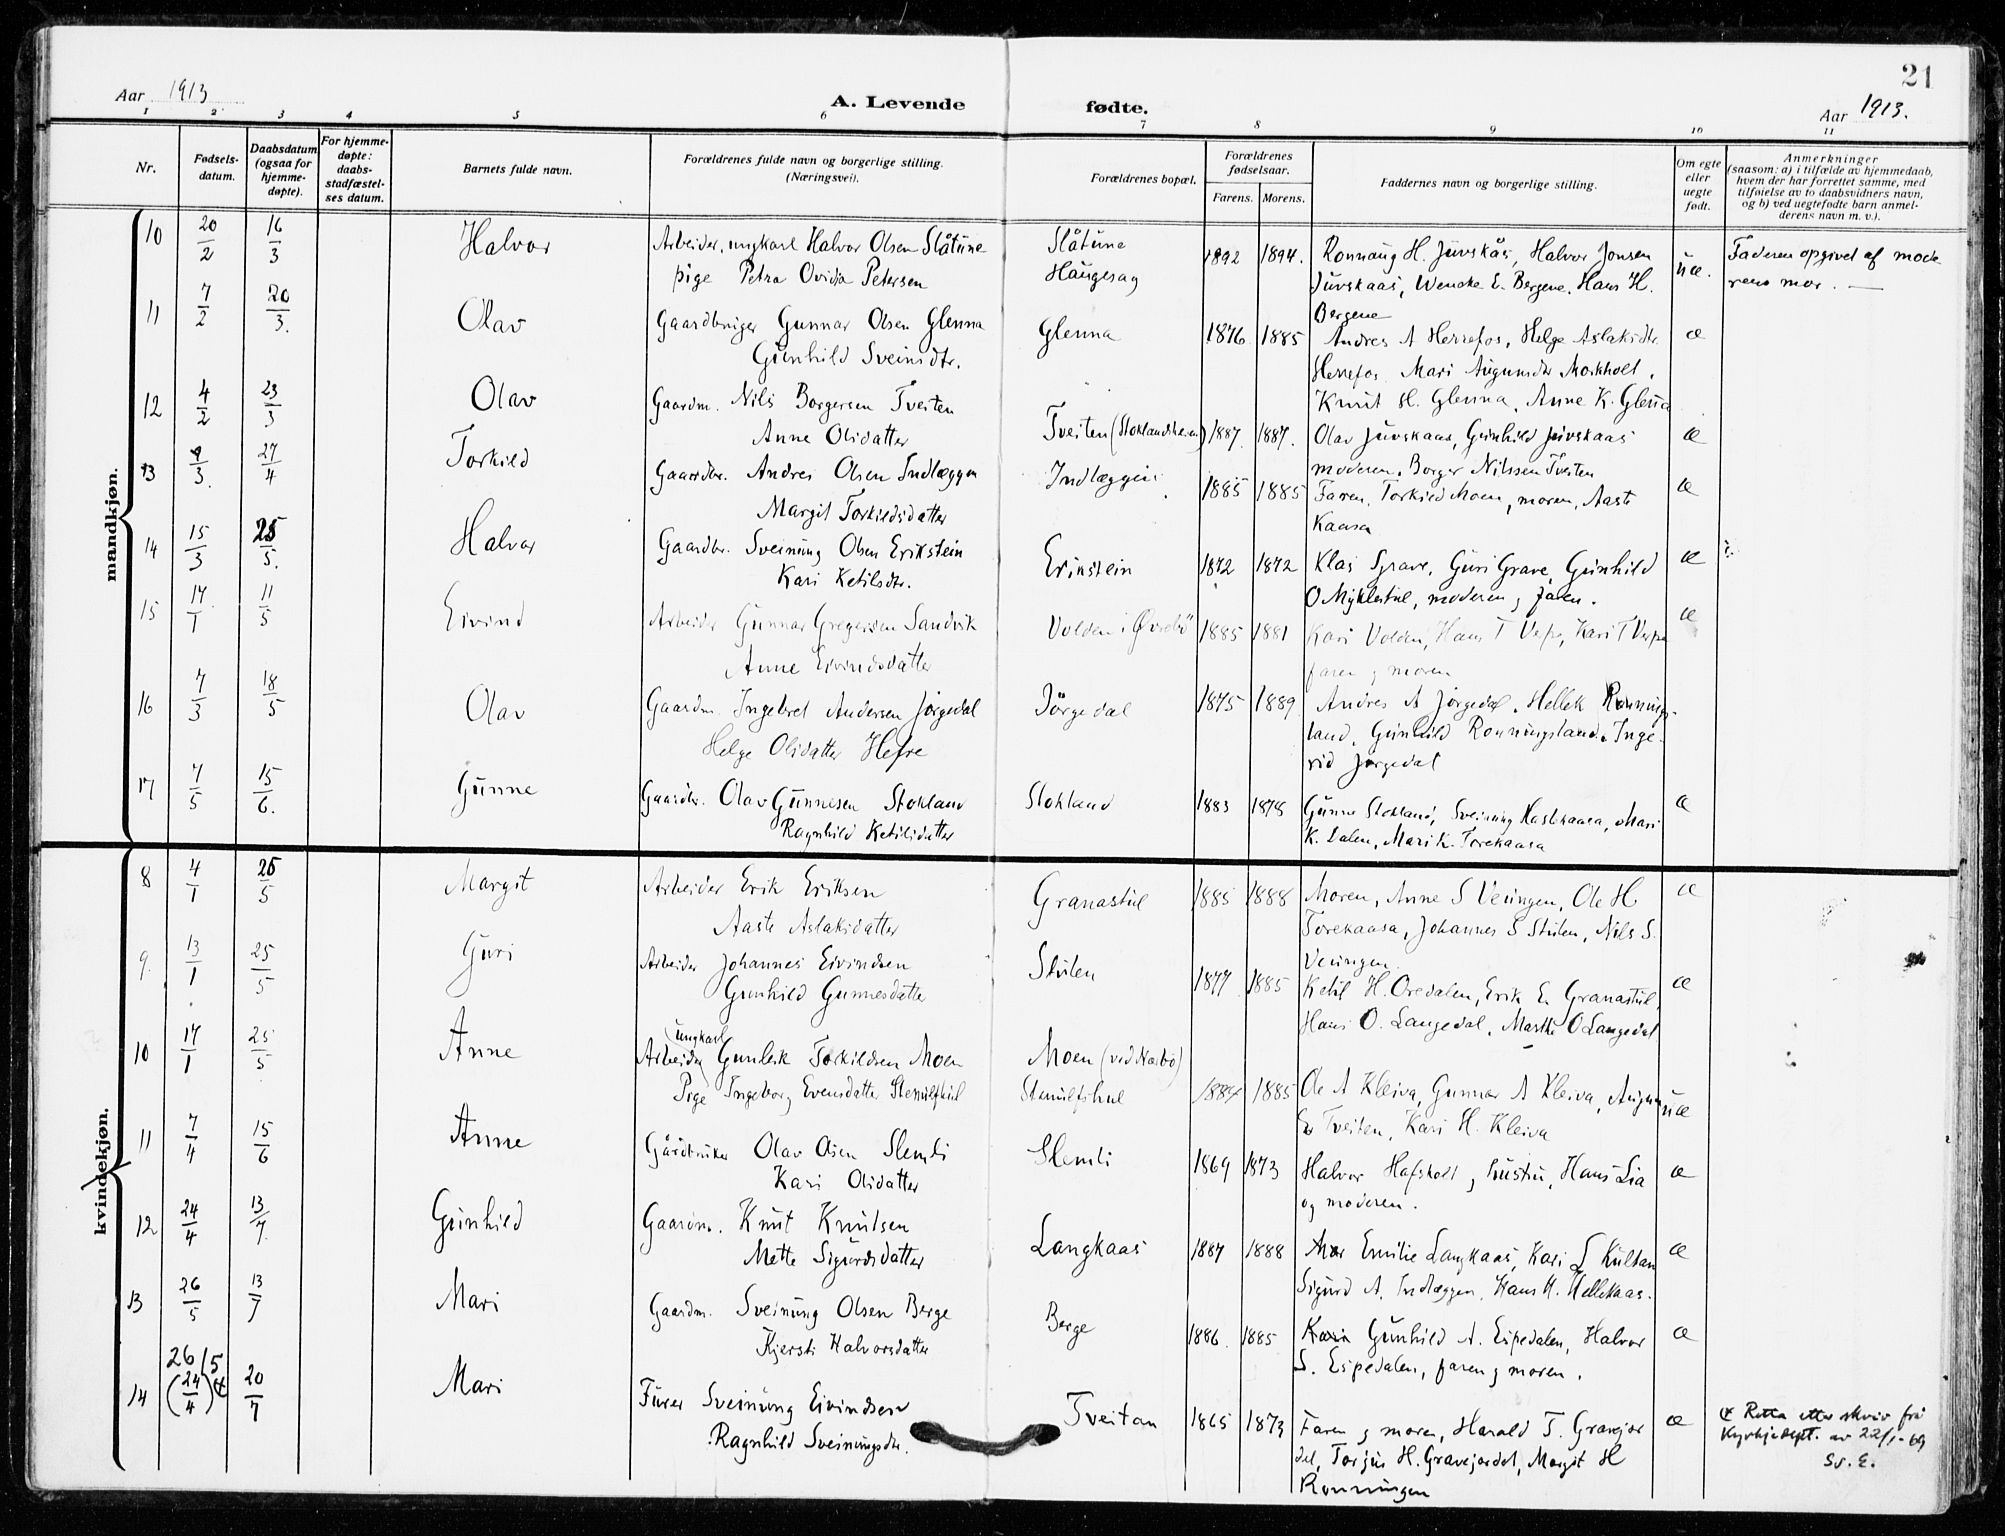 21
Aar 1913
A. Levende fødte.
Aar 1913.
1 2 3 4 5 6 7 8 9 10 11
Nr.
Fødsels-
datum.
Daabsdatum
(ogsaa for
hjemme-
døpte).
For hjemme-
døpte:
daabs-
stadfæstel-
ses datum.
Barnets fulde navn.
Forældrenes fulde navn og borgerlige stilling.
(Næringsvei).
Forældrenes bopæl.
Forældrenes
fødselsaar.
Farens. Morens.
Faddernes navn og borgerlige stilling.
Om egte
eller
uegte
født.
Anmerkninger
(saasom: a) i tilfælde av hjemmedaab,
hvem der har forrettet samme, med
tilføielse av to daabsvidners navn,
og b) ved uegtefødte barn anmel-
derens navn m. v.).
mandkjøn.
10 20/2 16/3 Halvor Arbeider, ungkarl Halvor Olsen Slåtune Slåtune 1892 1894. Ronnaug H. Juvskås, Halvor Jonsen uæ. Faderen opgivet af mode-
pige Petra Ovidia Petersen Haugesag Juvskaas, Wencke E. Bergene. Hans H. rens mor. —
Bergene
11 7/2 20/3. Olav Gaardbruger Gunnar Olsen Glenna Glenna 1876 1885 Andres A Herrefos, Helge Aslaksdtr. æ
Gunhild Sveinsdtr. Herrefos Mari Augunsdtr Morkholt.
Knut H. Glenna, Anne K. Glenna
12 4/2 23/3 Olav Gaardm. Nils Borgersen Tveiten Tveiten (Stoklandheien) 1887. 1887. Olav Juvskaas, Gunhild Juvskaas æ
Anne Olsdatter moderen, Borger Nilssen Tveiten
13 9/3. 27/4 Torkild Gaardbr. Andres Olsen Indlæggen Indlæggen 1885 1885 Faren, Torkild Moen, moren, Aaste æ
Margit Torkildsdatter Kaasa
14 15/3 25/5. Halvor Gaardbr. Sveinung Olsen Erikstein Erikstein 1872 1872 Klas Grave, Guri Grave, Gunhild æ
Kari Ketilsdtr. O Myklestul, moderen g faren.
15 17/1 11/5 Eivind Arbeider Gunnar Gregersen Sandvik Volden i Øvrebö 1885 1881 Kari Volden, Hans T Vepe, Kari T Verpe æ
Anne Eivindsdatter faren g moren
16 7/3 18/5 Olav Gaardm. Ingebret Andersen Jørgedal Jörgedal 1875 1889 Andres A Jørgedal, Hellek Ronnings-
Helge Olsdatter Hefre land, Gunhild Ronningsland, Inge-
rid Jørgedal
17 7/5 15/6. Gunne Gaardbr. Olav Gunnesen Stokland Stokland 1883 1878 Gunne Stokland, Sveinung Haslekaasa, Mari æ
Ragnhild Ketilsdatter K. Dalen, Mari K. Torekaasa
kvindekjøn.
8 4/1 25/5 Margit Arbeider Erik Eriksen Granastul 1885 1888 Moren, Anne S Veungen, Ole H æ
Aaste Aslaksdatter Torekaasa, Johannes S Stulen, Nils S.
Veungen.
9. 13/1 25/5 Guri Arbeider Johannes Eivindsen Stulen 1877 1885 Ketil H. Oredalen, Erik E. Granastul, æ
Gunhild Gunnesdatter Hans O. Langedal, Marthe O Langedal
10 17/1 25/5 Anne (ungkarl
Arbeider Gunlek Torkildsen Moen Moen (ved Næsbø)
Pige Ingeborg Evensdatter Stenulfshul Stenulfshul 1884 1885 Ole A Kleiva, Gunnar A Kleiva, Augun uæ
Tveiten, Kari H. Kleiva
11 7/4 15/6 Anne Gårdbruker Olav Olsen Slemli Slemli 1869 1873 Halvor Hafskolt g hustru, Hans Lia æ
Kari Olsdatter og moderen.
12 24/4 13/7. Gunhild Gaardm. Knut Knutsen Langkaas 1887 1888 Emilie Langkaas, Kari S Kultan æ
Mette Sigurdsdatter Sigurd A. Indlæggen, Hans H. Hellekaas.
13 26/5 13/7 Mari Gaardm. Sveinung Olsen Berge Berge 1886. 1885 Gunhild A. Espedalen, Halvor æ
Kjersti Halvorsdatter S. Espedalen, faren g moren.
14 26/5 (24/4) 20/7 Mari Furer Sveinung Eivindsen Tveitan 1865 1873 Faren g moren, Harald T. Gravejor æ Retta etter skriv frå
Ragnhild Sveinungsdtr. del, Torjus H. Gravejordet, Margit H Kyrkjedept. av 22/1-69
Ronningen Sv. E.